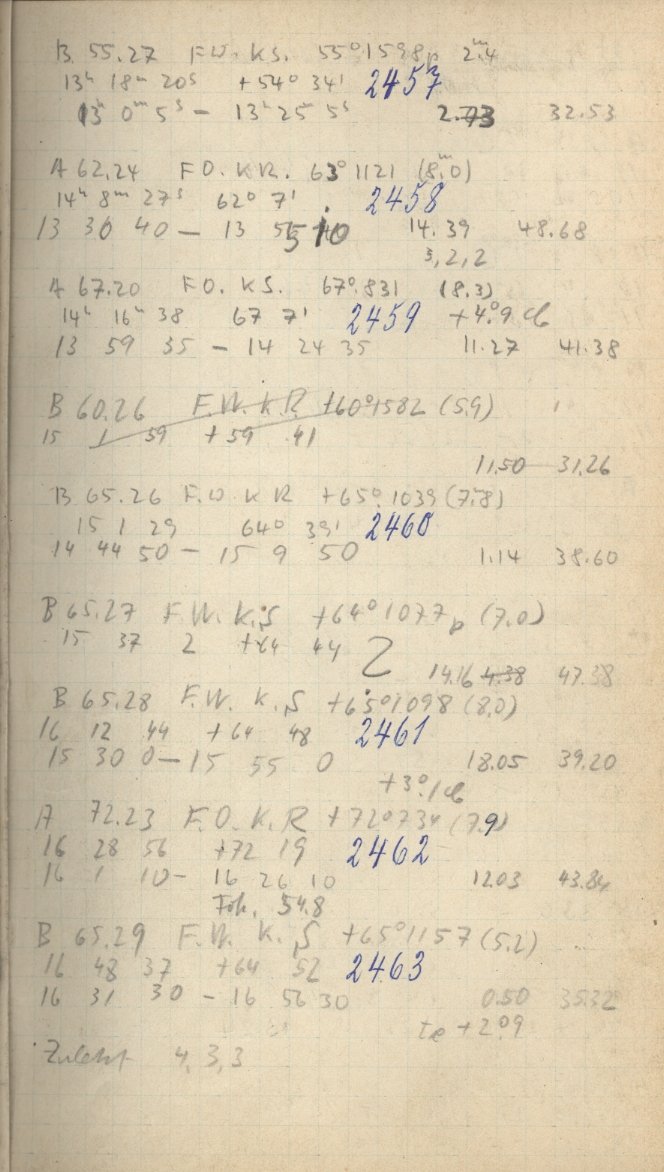 B 55.27 F.W. KS. 55° 1598p 2ᵐ.4
13ʰ 18ᵐ 20ˢ +54° 34' 2457
13ʰ 0ᵐ 5ˢ — 13ʰ 25 5ˢ 2.73 32.53
A 62.24 F O. KR. 63° 1121 (8ᵐ.0)
14ʰ 8ᵐ 27ˢ 62° 7' 2458
13 30 40 — 13 55 40 14.39 48.68
3,2,2
A 67.20 F O. KS. 67° 831 (8.3)
14ʰ 16ʰ 38 67 7' 2459 +4°.9 cb
13 59 35 — 14 24 35 11.27 41.38
B 60.26 F.W. K R +60° 1582 (5.9)
15 1 59 +59 41
11.50 31.26
B 65.26 F W K R +65° 1039 (7.8)
15 1 29 64° 39' 2460
14 44 50 — 15 9 50 1.14 38.60
B 65.27 F.W. K.S +64° 1077p (7.0)
15 37 2 +64 44
14.16 4.38 47.38
B 65.28 F.W. K.S +65° 1098 (8.0)
16 12 44 +64 48 2461
15 30 0 — 15 55 0 18.05 39.20
+3°.1 cb
A 72.23 F.O. K.R +72° 734 (7.9)
16 28 56 +72 19 2462
16 1 10 — 16 26 10 12.03 43.84
54.8
B 65.29 F.W. K.S +65° 1157 (5.2)
16 48 37 +64 52 2463
16 31 30 — 16 56 30 0.50 35.32
te +2°.9
Zuletzt 4,3,3